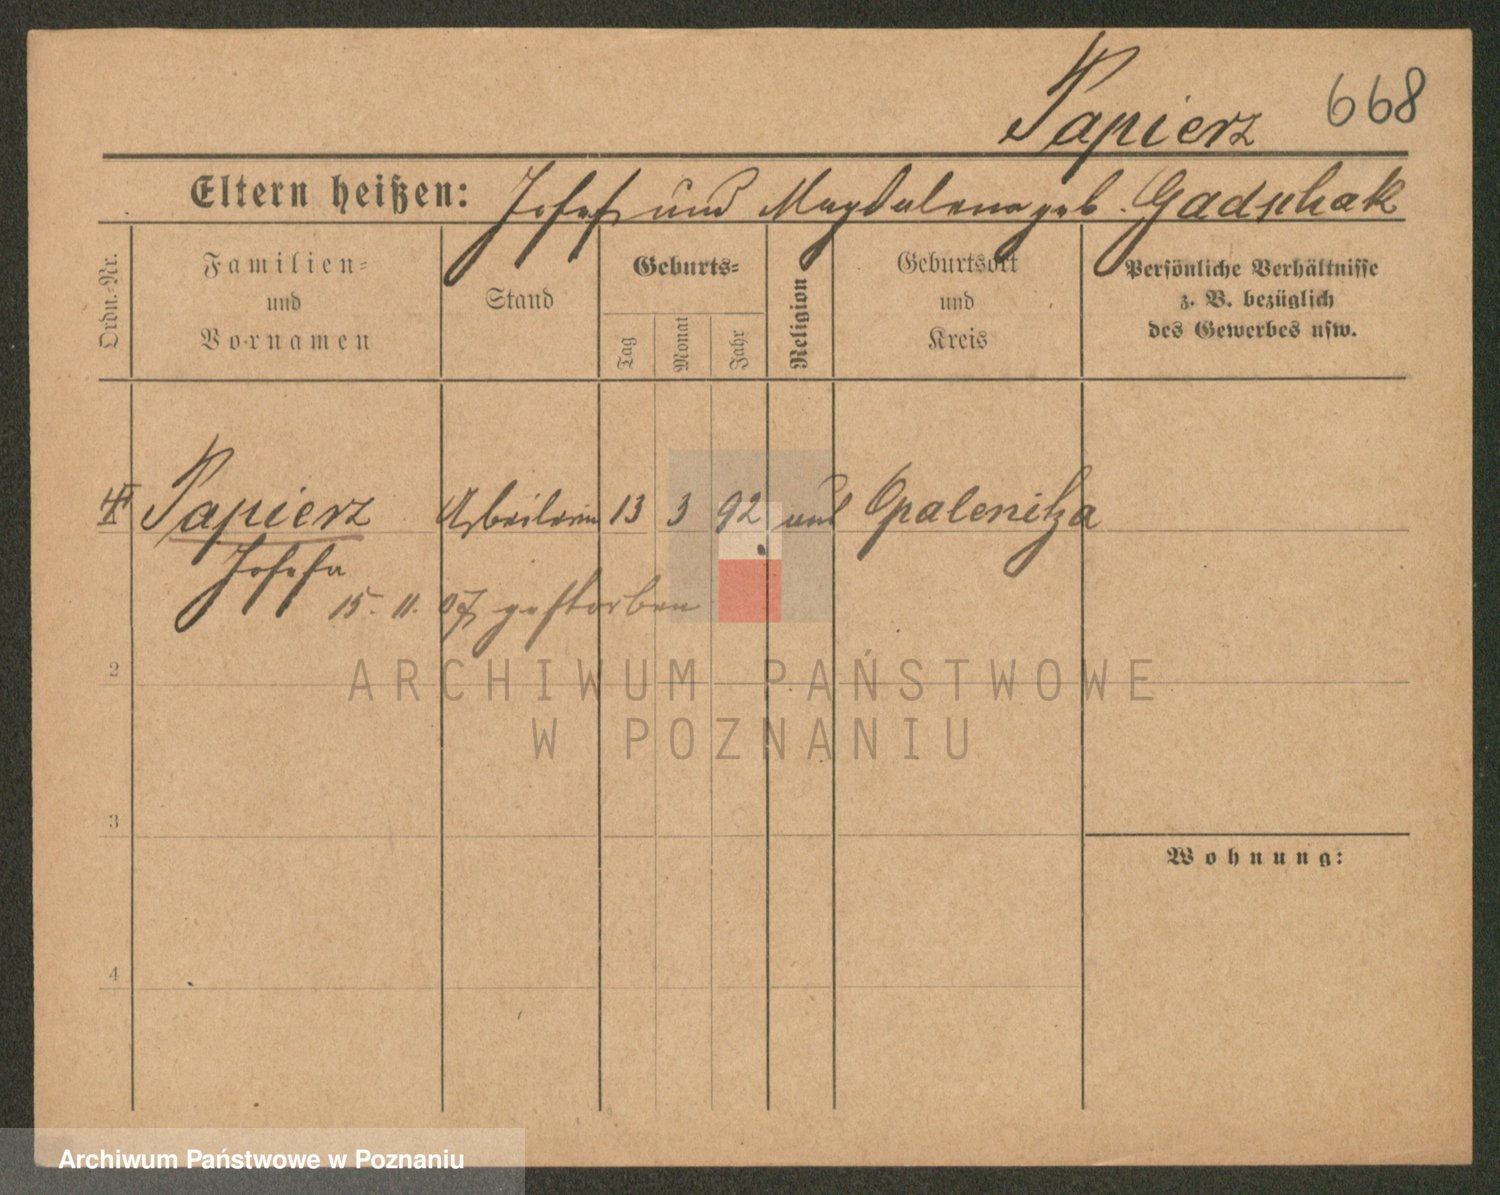 Papierz 668
Eltern heißen: Josef und Magdalena geb. Gadschak
Ordn.-Nr.
Familien-
und
Vornamen
Stand
Geburts-
Tag
Monat
Jahr
Religion
Geburtsort
und
Kreis
Persönliche Verhältnisse
z. B. bezüglich
des Gewerbes usw.
Papierz Arbeiterin 13 3 92 Opalenitza
Josefa
15. 11. 07 gestorben
2
ARCHIWUM PAŃSTWOWE
W POZNANIU
3
Wohnung:
4
Archiwum Państwowe w Poznaniu